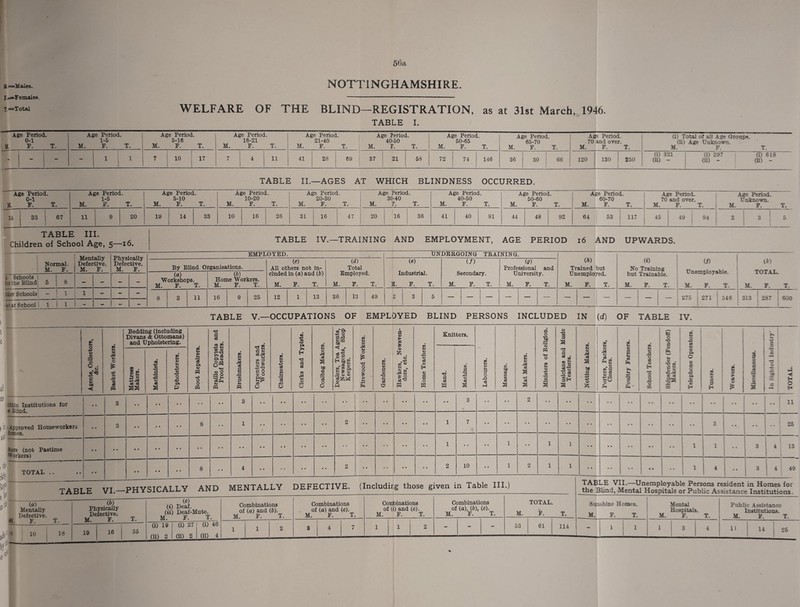 56a
M.—Males.
F.—Females.
T.—Total
NOTTINGHAMSHIRE.
WELFARE OF THE BLIND—REGISTRATION, as at 31st March, 1946.
TABLE I.
Age Period. 0-1 Age Period. 1-5 Age Period. 5-16 Age Period. 16-21 Age Period. 21-40 Age Period. 40-50 Age Period. 50-65 Age Period. 65-70 Age Period. 70 and over. (i) Total of all Age Groups. (ii) Age Unknown.
F. T. M. F. T. M. F. T. M. F. T. M. F. T. M. F. T. M. F. T. M. F. T. M. F. T. M. F. T.
- - - - 1 1 7 10 17 7 4 11 41 28 69 37 21 58 72 74 146 36 30 66 120 130 250 (i) 321 (i) 297 (i) 618
(ii) - (ii) - (ii) -
TABLE II.—AGES AT WHICH BLINDNESS OCCURRED.
Age Period. 0-1 Age Period. 1-5 Age Period. 5-10 Age Period. 10-20 Age Period. 20-30 Age Period. 30-40 Age Period. 40-50 Age Period. 50-60 Age Period. 60-70 Age Period. 70 and over. Age Period. Unknown.
F. T. M. F. T. M. F. T. M. F. T. M. F. T. M. F. T. M. F. T. M. F. T. M. F. T. M. F. T. M. F. T.
33 67 11 9 20 19 14 33 10 16 26 31 16 47 20 16 36 41 40 81 44 48 92 64 53 117 45 49 94 2 3 5
TABLE III.
Children of School Age, 5—16.
Normal. M. F. Mentally Defective. M. F. Physically Defective. M. F.
Schools for the Blind 5 8 - - - -
Schools - 1 1 - - -
at School 1 1 - - - -
TABLE IV.—TRAINING AND EMPLOYMENT, AGE PERIOD 16 AND UPWARDS.
EMPLOYED. UNDERGOING TRAINING.
By Blind Organisations. (a) Workshops. M. F. T. (b) Home Workers. M. F. T. (c) All others not included in (a) and (b) M. F. T. (d) Total Employed. M. F. T. (e) Industrial. M. F. T. (f) Secondary. M. F. T. (g) Professional and University. M. F. T. (h) Trained but Unemployed. M. F. T. (i) No Training but Trainable. M. F. T. (j) Unemployable. M. F. T. (k) TOTAL. M. F. T.
8 3 11 16 9 25 12 1 13 36 13 49 2 3 5 — — — — — — — — — — — — 275 271 546 313 287 600
TABLE V.—OCCUPATIONS OF EMPLOYED BLIND PERSONS INCLUDED IN (d) OF TABLE IV.
Agents, Collectors, &c.
Basket Workers.
Bedding (including Divans & Ottomans) and Upholstering.
Mattress Makers.
Machinists.
Upholsterers.
Boot Repairers.
Braille Copyists and Proof Readers.
Brushmakers.
Carpenters and Woodworkers.
Chairseaters.
Clerks and Typists.
Coalbag Makers.
Dealers, Tea Agents, Newsagents, Shop Keepers.
Firewood Workers.
Gardeners.
Hawkers, Newsvendors, etc.
Home Teachers.
Knitters.
Hand.
Machine.
Labourers.
Massage.
Mat Makers.
Ministers of Religion.
Musicians and Music Teachers.
Netting Makers.
Porters, Packers, Cleaners.
Poultry Farmers.
School Teachers.
Shipfender (Pinadoff) Makers.
Telephone Operators.
Tuners.
Weavers.
Miscellaneous.
In Sighted Industry
TOTAL.
Institutions for Blind. 3 3 3 2 11
Approved Homeworkers 3 8 1 2 1 7 3 25
(not Pastime Workers) 1 1 1 1 1 1 3 4 13
TOTAL .. 8 4 2 2 10 1 2 1 1 1 4 3 4 49
TABLE VI.—PHYSICALLY AND MENTALLY DEFECTIVE. (Including those given in Table III.)
(a) Mentally Defective. F. T. (b) Physically Defective. M. F. T. (c) (i) Deaf. (ii) Deaf-Mute. M. F. T. Combinations of (a) and (b). M. F. T. Combinations of (a) and (c). M. F. T. Combinations of (b) and (c). M. F. T. Combinations of (a), (b), (c). M. F. T. TOTAL. M. F. T.
10 18 19 16 35 (i) 19 (i) 27 (i) 46 1 1 2 3 4 7 1 1 2 - - - 53 61 114
(ii) 2 (ii) 2 (ii) 4
TABLE VII.—Unemployable Persons resident in Homes for the Blind, Mental Hospitals or Public Assistance Institutions.
Sunshine Homes. M. F. T. Mental Hospitals. M. F. T. Public Assistance Institutions. M. F. T.
- 1 1 1 3 4 11 14 25